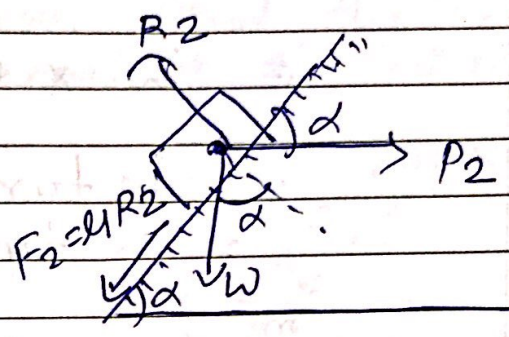 R2
α
P2
F2=μR2
α
α
W